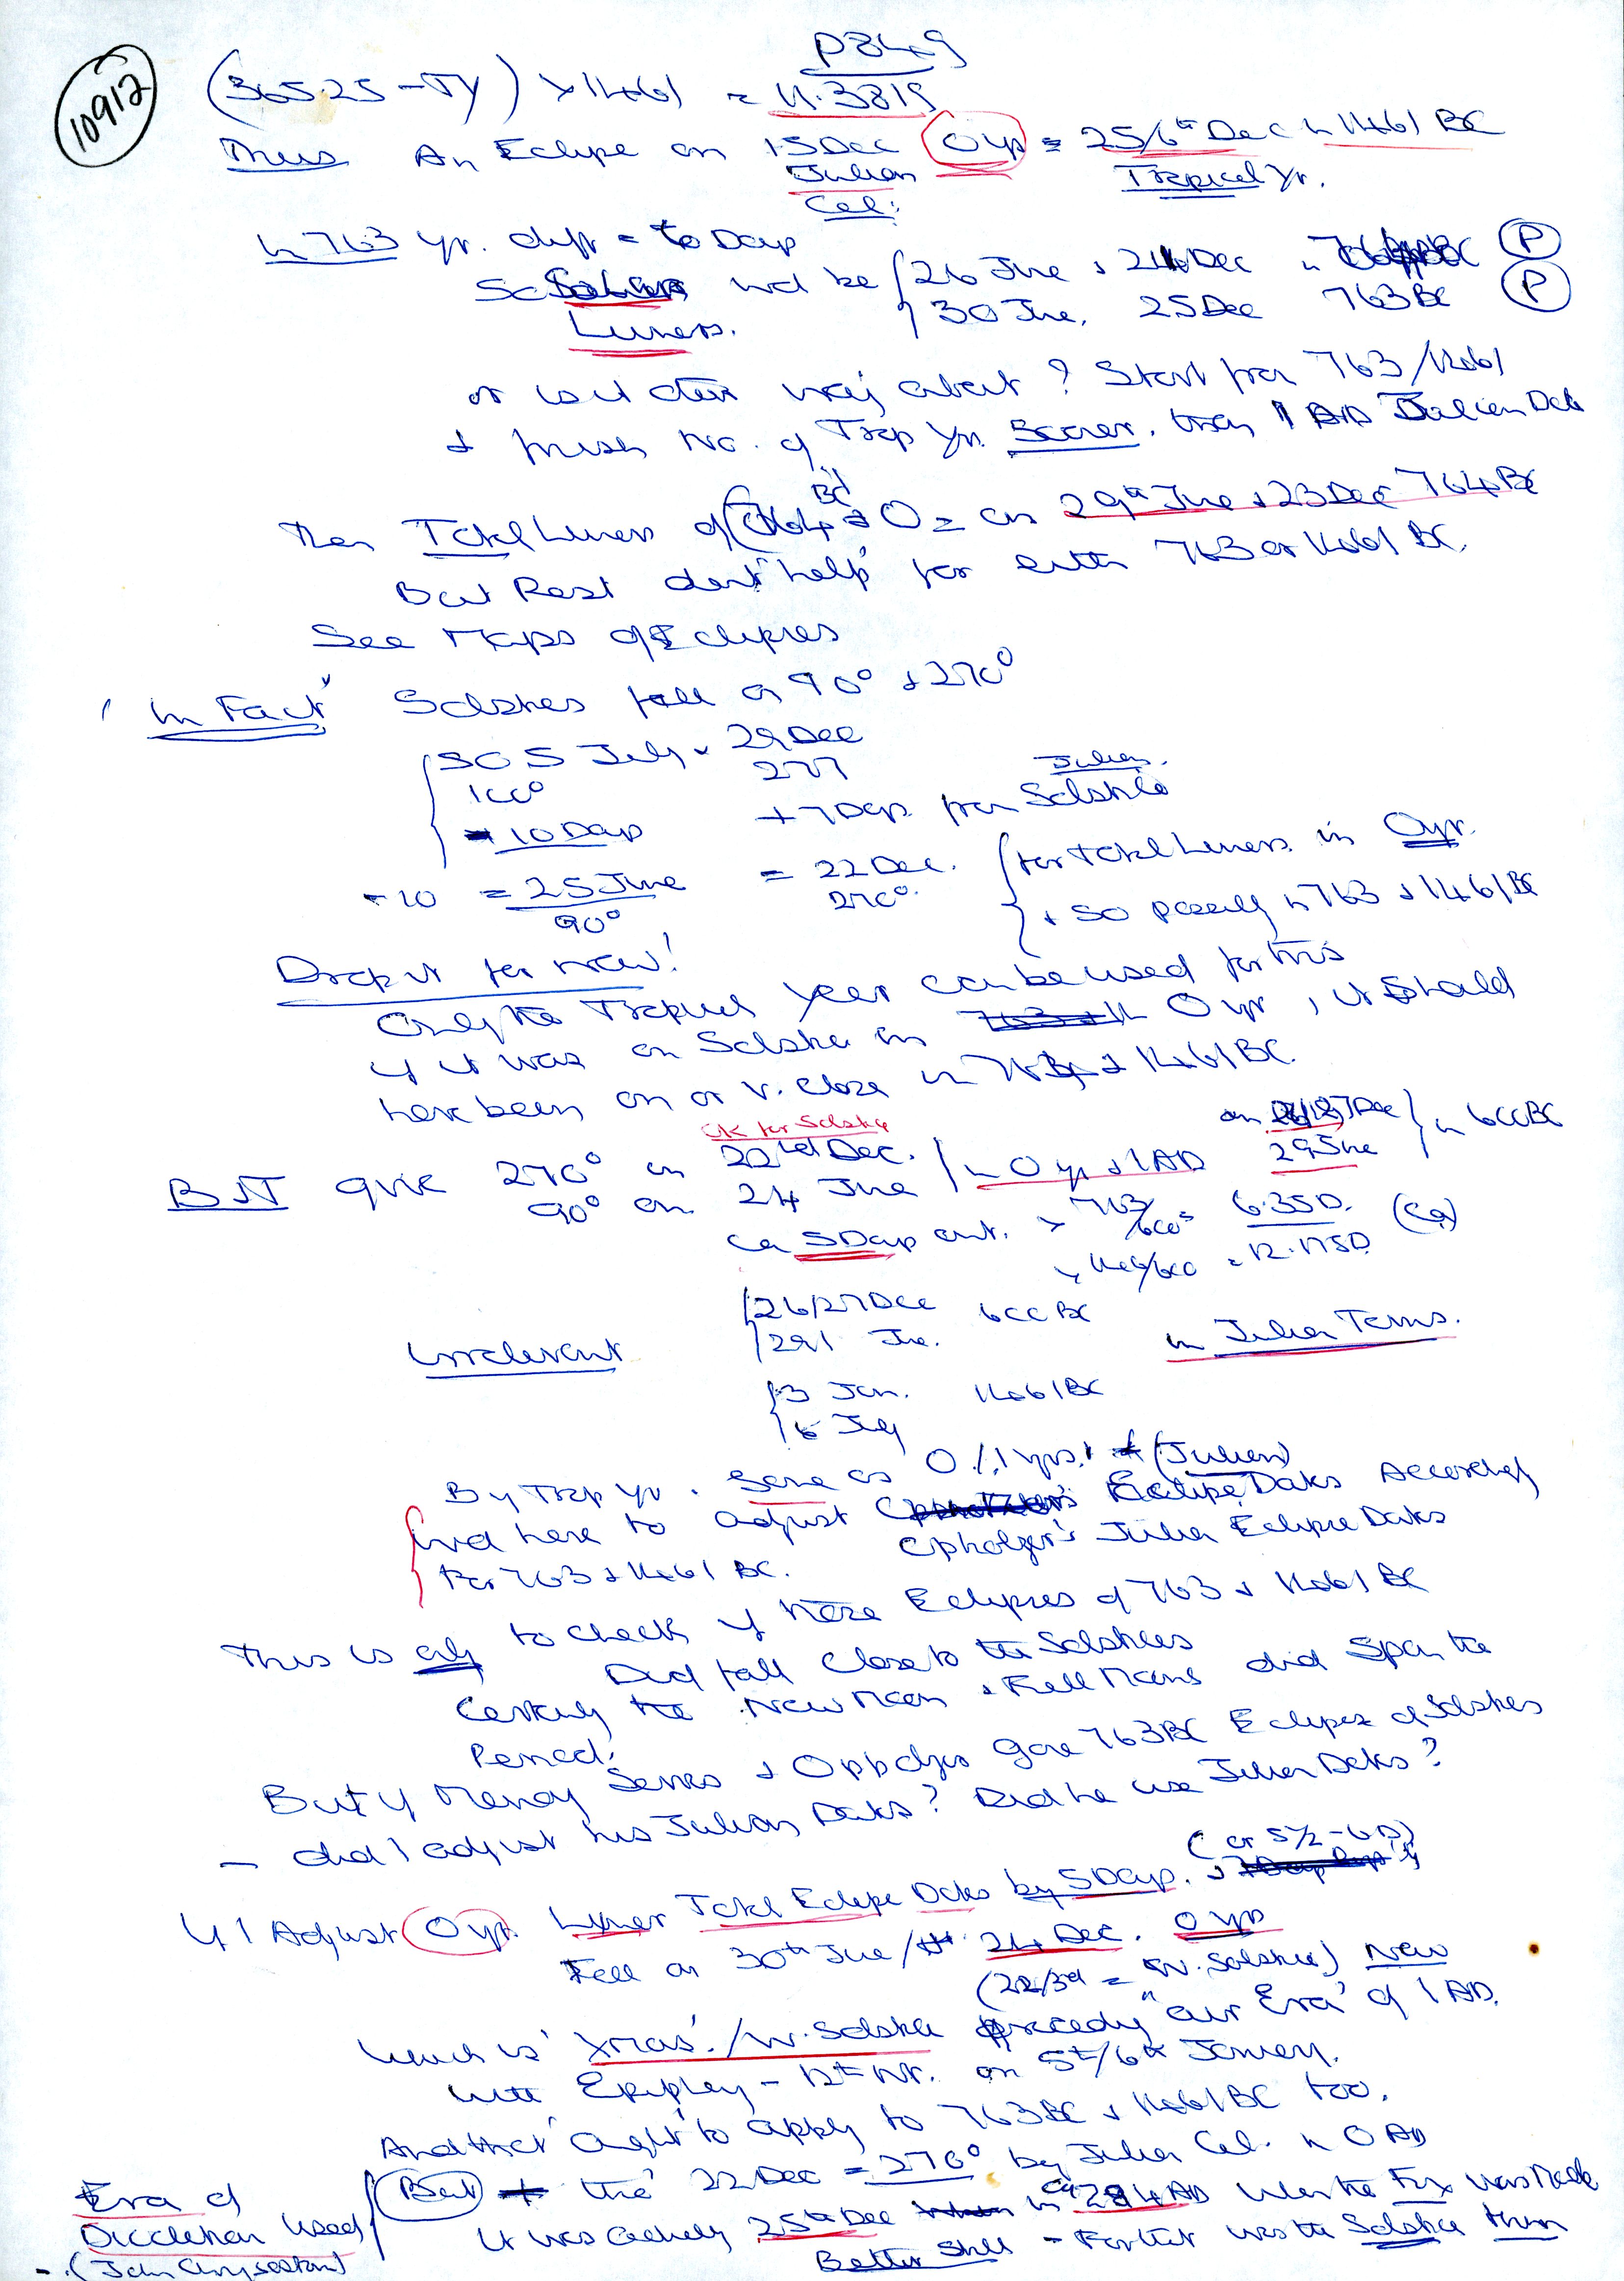 P849
10912
(365.25 - TY) × 1461 = 11.3819
Thus An Eclipse on 15 Dec 0 yr = 25/6th Dec in 1461 BC
Julian Tropical Yr.
Cal:
In 763 yr. diff = 6 Days
So wd be 26 June & 24 Dec in BC P
Lunars. 30 June, 25 Dec 763 BC P
or wd other way about? Start from 763/1461
& finish No. of Trop Yr. Sooner, than 1 AD Julian Date
BC
Then Total Lunars of 0 = on 29th June & 23 Dec 764 BC
But Rest don't 'help' for either 763 or 1461 BC.
See Maps of Eclipses
'In Fact' Solstices fall on 90° & 270°
5 July & 29 Dec
100° 277 Julian.
- 10 Days + 7 Days from Solstice
- 10 = 25 June = 22 Dec. for total Lunars in 0 yr.
90° 270° & so possibly in 763 & 1461 BC
Drop it for now!
Only the Tropical Year can be used for this
if it was on Solstice in 0 yr, it should
have been on or v. close in & 1461 BC.
OK for Solstice
BUT give 270° on 22nd Dec. in 0 yr & 1 AD on 26/27 Dec in 600 BC
90° on 24 June 29 June
ca 5 Days out. × 763/600 = 6.35D. (Ca)
× 1461/600 = 12.175D
26/27 Dec 600 BC
Irrelevant 29 June. in Julian Terms.
3 Jan. 1461 BC
6 July
By Trop Yr. Same as 0/1 yrs. (Julian)
wd have to adjust Eclipse Dates Accordingly
For 763 & 1461 BC. Opholzer's Julian Eclipse Dates
This is only to check if these Eclipses of 763 & 1461 BC
Did fall close to the Solstices
Certainly the New Moon & Full Moons did Span the
Period.
But if Menoy Series & Oppolzer gave 763 BC Eclipses at Solstices
- did I adjust his Julian Dates? Did he use Julian Dates?
(or 5½-6 D)
If I Adjust 0 yr. Lunar Total Eclipse Dates by 5 Days.
Fell on 30th June / 24 Dec. 0 yrs
(22/3rd = W. Solstice) New
which is 'Xmas'/W. Solstice preceding "our Era" of 1 AD.
with Epiphany - 12th Nt. on 5th/6th January.
And that ought to apply to 763 BC & 1461 BC too.
But the 22 Dec = 270° by Julian Cal. in 0 AD
Era of
Diocletian used It was actually 25th Dec in ca 284 AD when the Fix was Made
- (John Chrysostom) Better Still - Further was the Solstice then